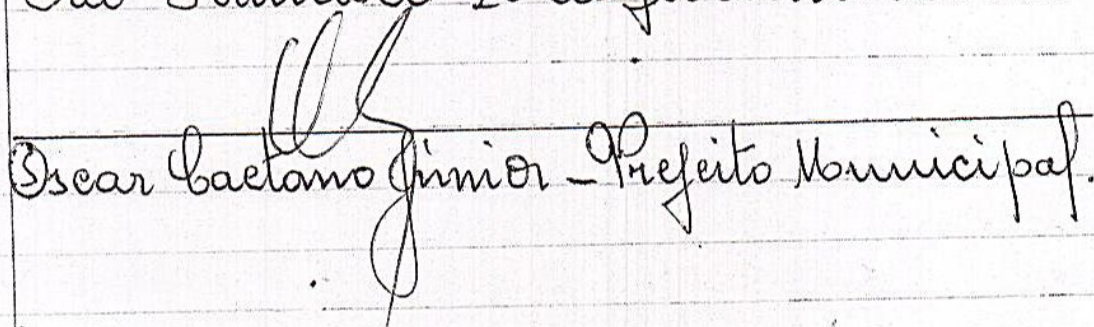 Oscar Caetano Júnior - Prefeito Municipal.